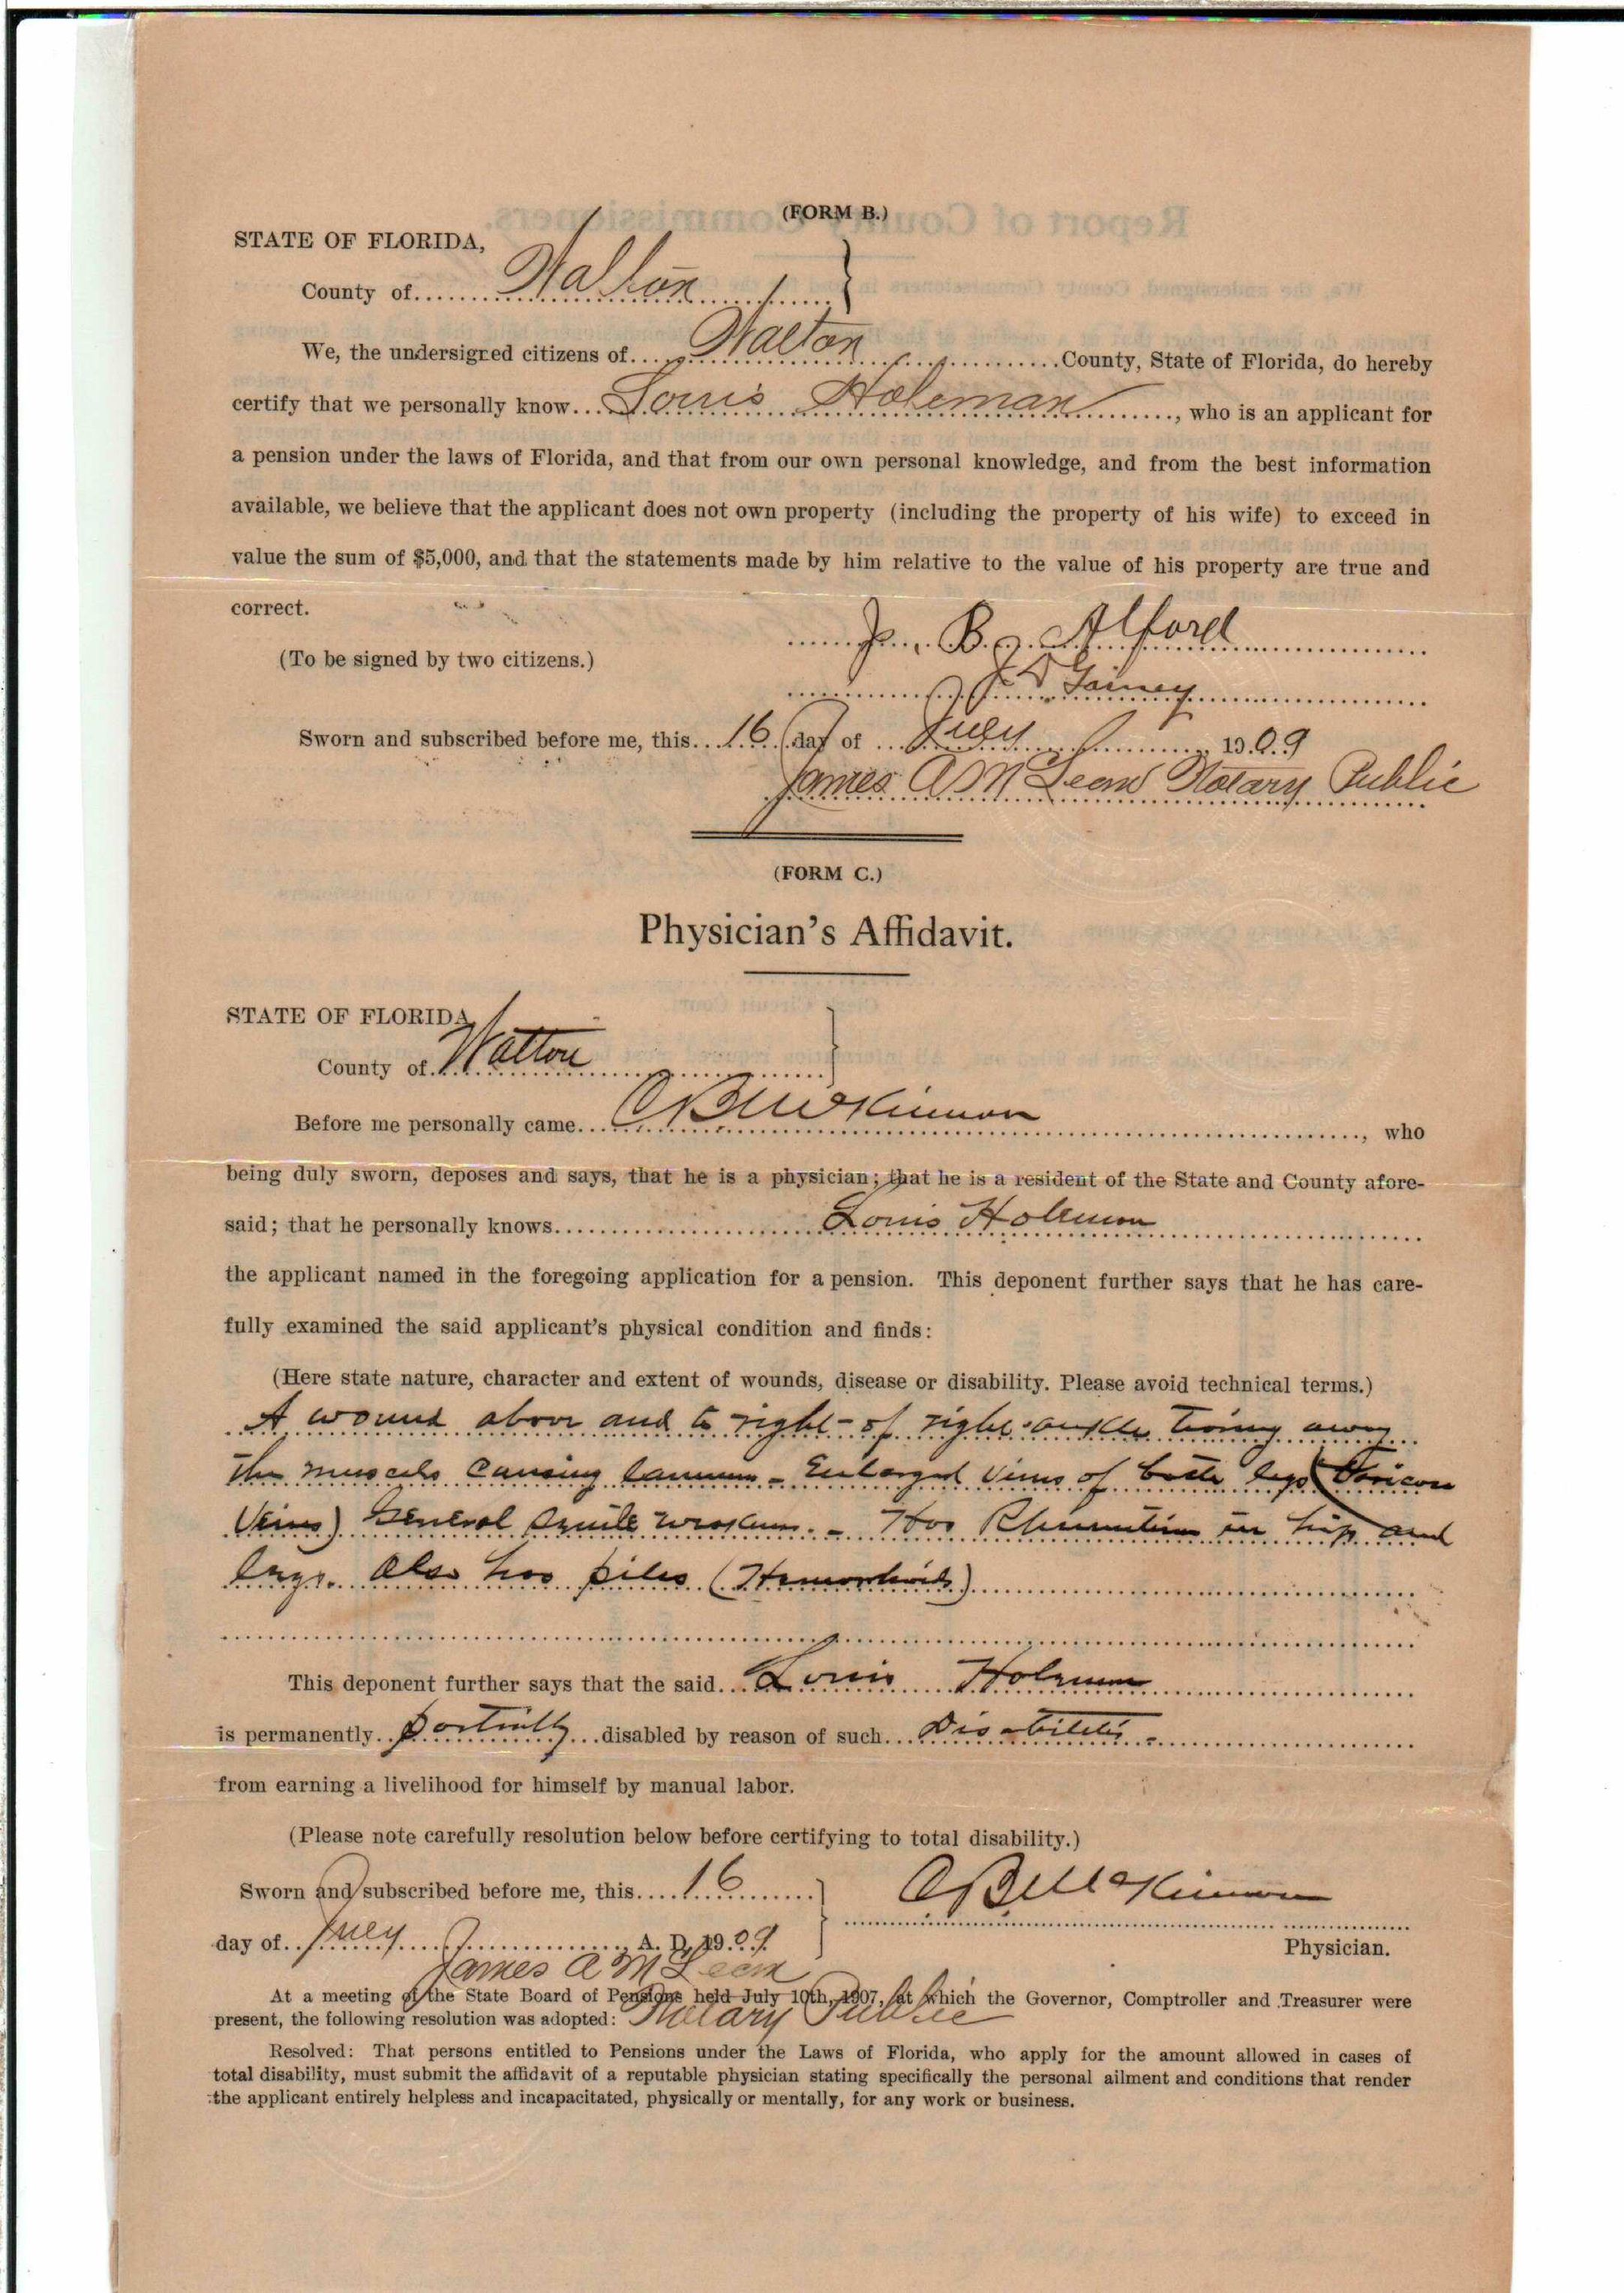 (FORM B.)
STATE OF FLORIDA,
County of Walton
We, the undersigned citizens of Walton County, State of Florida, do hereby
certify that we personally know Louis Holeman, who is an applicant for
a pension under the laws of Florida, and that from our own personal knowledge, and from the best information
available, we believe that the applicant does not own property (including the property of his wife) to exceed in
value the sum of $5,000, and that the statements made by him relative to the value of his property are true and
correct.
B. Alford
(To be signed by two citizens.)
Gainey
Sworn and subscribed before me, this 16 day of July 1909
James A McLean Notary Public
(FORM C.)
Physician's Affidavit.
STATE OF FLORIDA
County of Walton
Before me personally came C B McKinnon, who
being duly sworn, deposes and says, that he is a physician; that he is a resident of the State and County afore-
said; that he personally knows Louis Holeman
the applicant named in the foregoing application for a pension. This deponent further says that he has care-
fully examined the said applicant's physical condition and finds:
(Here state nature, character and extent of wounds, disease or disability. Please avoid technical terms.)
A wound above and to right of right ankle away
the muscels causing lameness - Enlarged Viens of both legs (Varicose
Veins) General senile weakness. - Has Rheumatism in hip and
legs. Also has piles (Hemorrhoids)
This deponent further says that the said Louis Holeman
is permanently partially disabled by reason of such Disabilities
from earning a livelihood for himself by manual labor.
(Please note carefully resolution below before certifying to total disability.)
Sworn and subscribed before me, this 16
C B McKinnon
day of July A. D. 1909
Physician.
James A McLean
Notary Public
At a meeting of the State Board of Pensions held July 10th, 1907, at which the Governor, Comptroller and Treasurer were
present, the following resolution was adopted:
Resolved: That persons entitled to Pensions under the Laws of Florida, who apply for the amount allowed in cases of
total disability, must submit the affidavit of a reputable physician stating specifically the personal ailment and conditions that render
the applicant entirely helpless and incapacitated, physically or mentally, for any work or business.